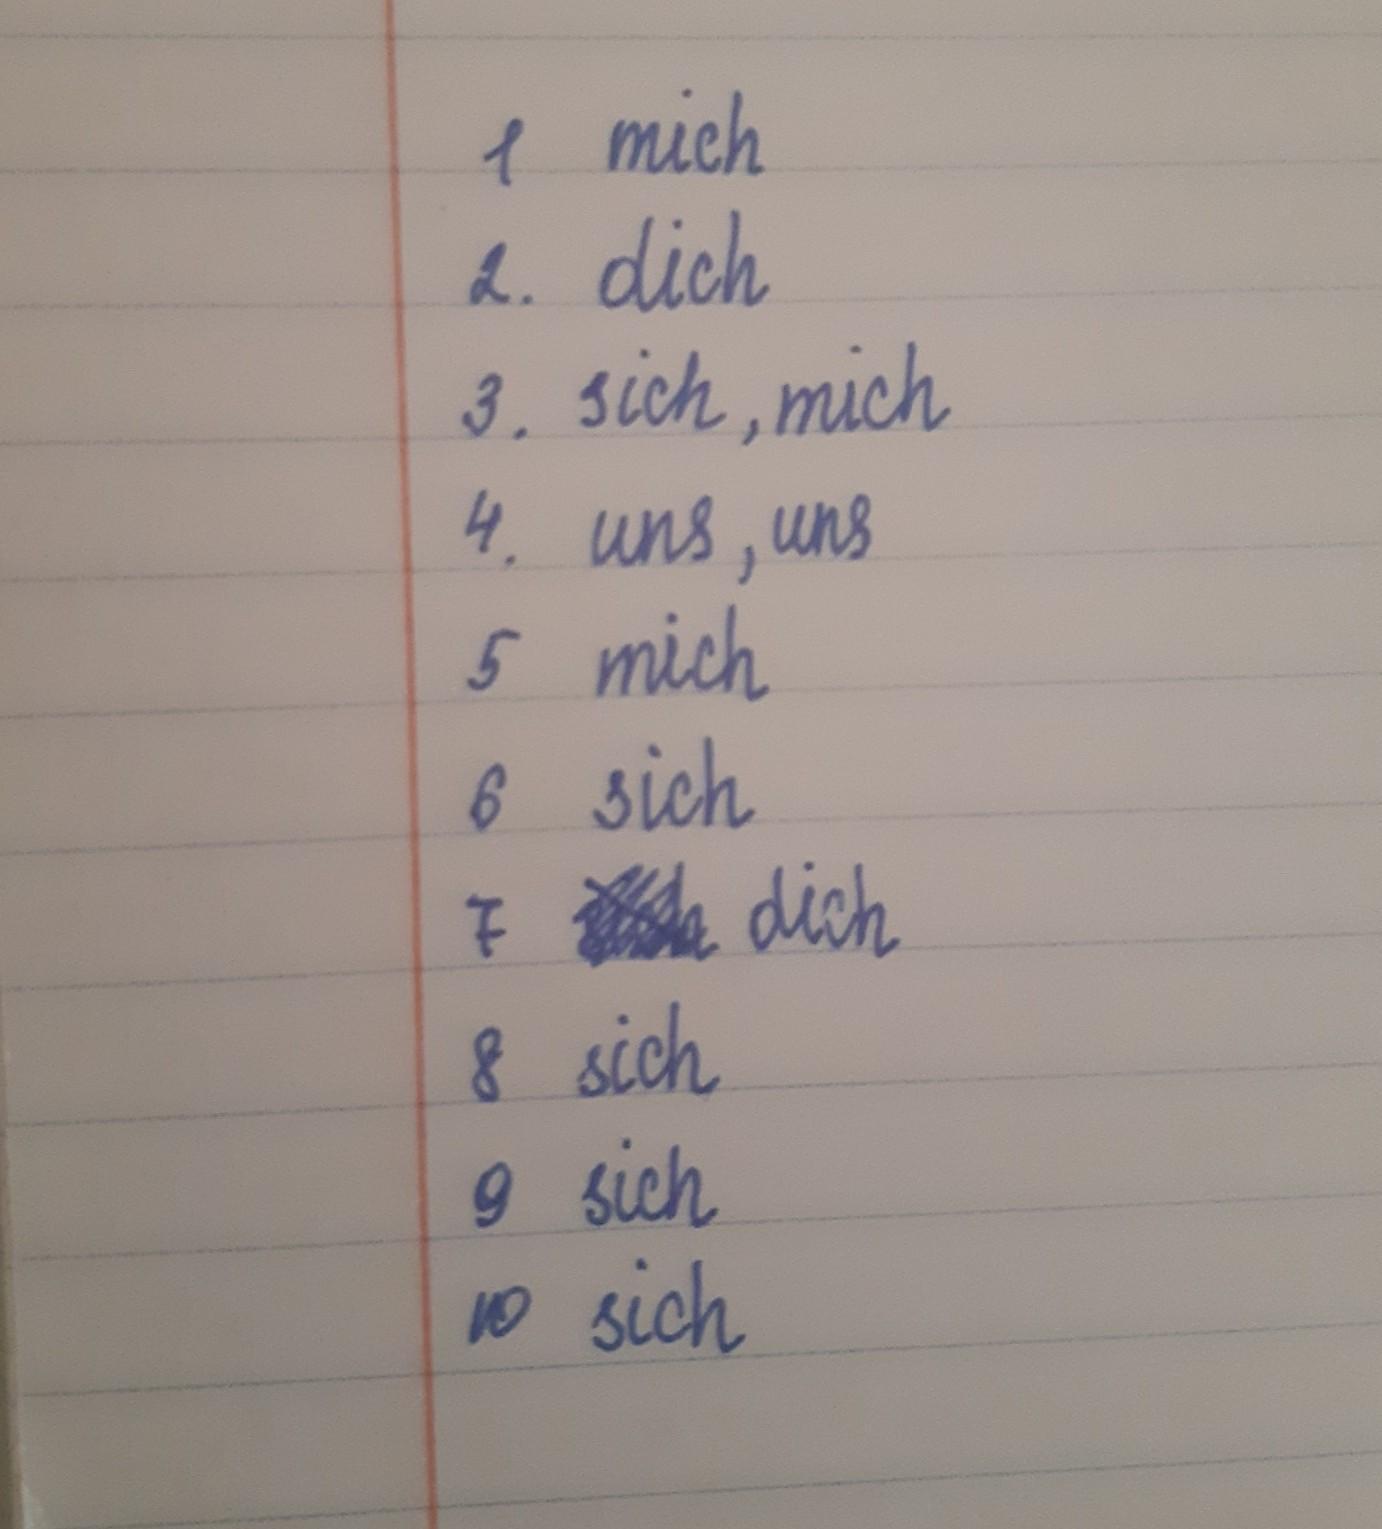 1 mich
2. dich
3. sich, mich
4. uns, uns
5 mich
6 sich
7 dich
8 sich
9 sich
10 sich